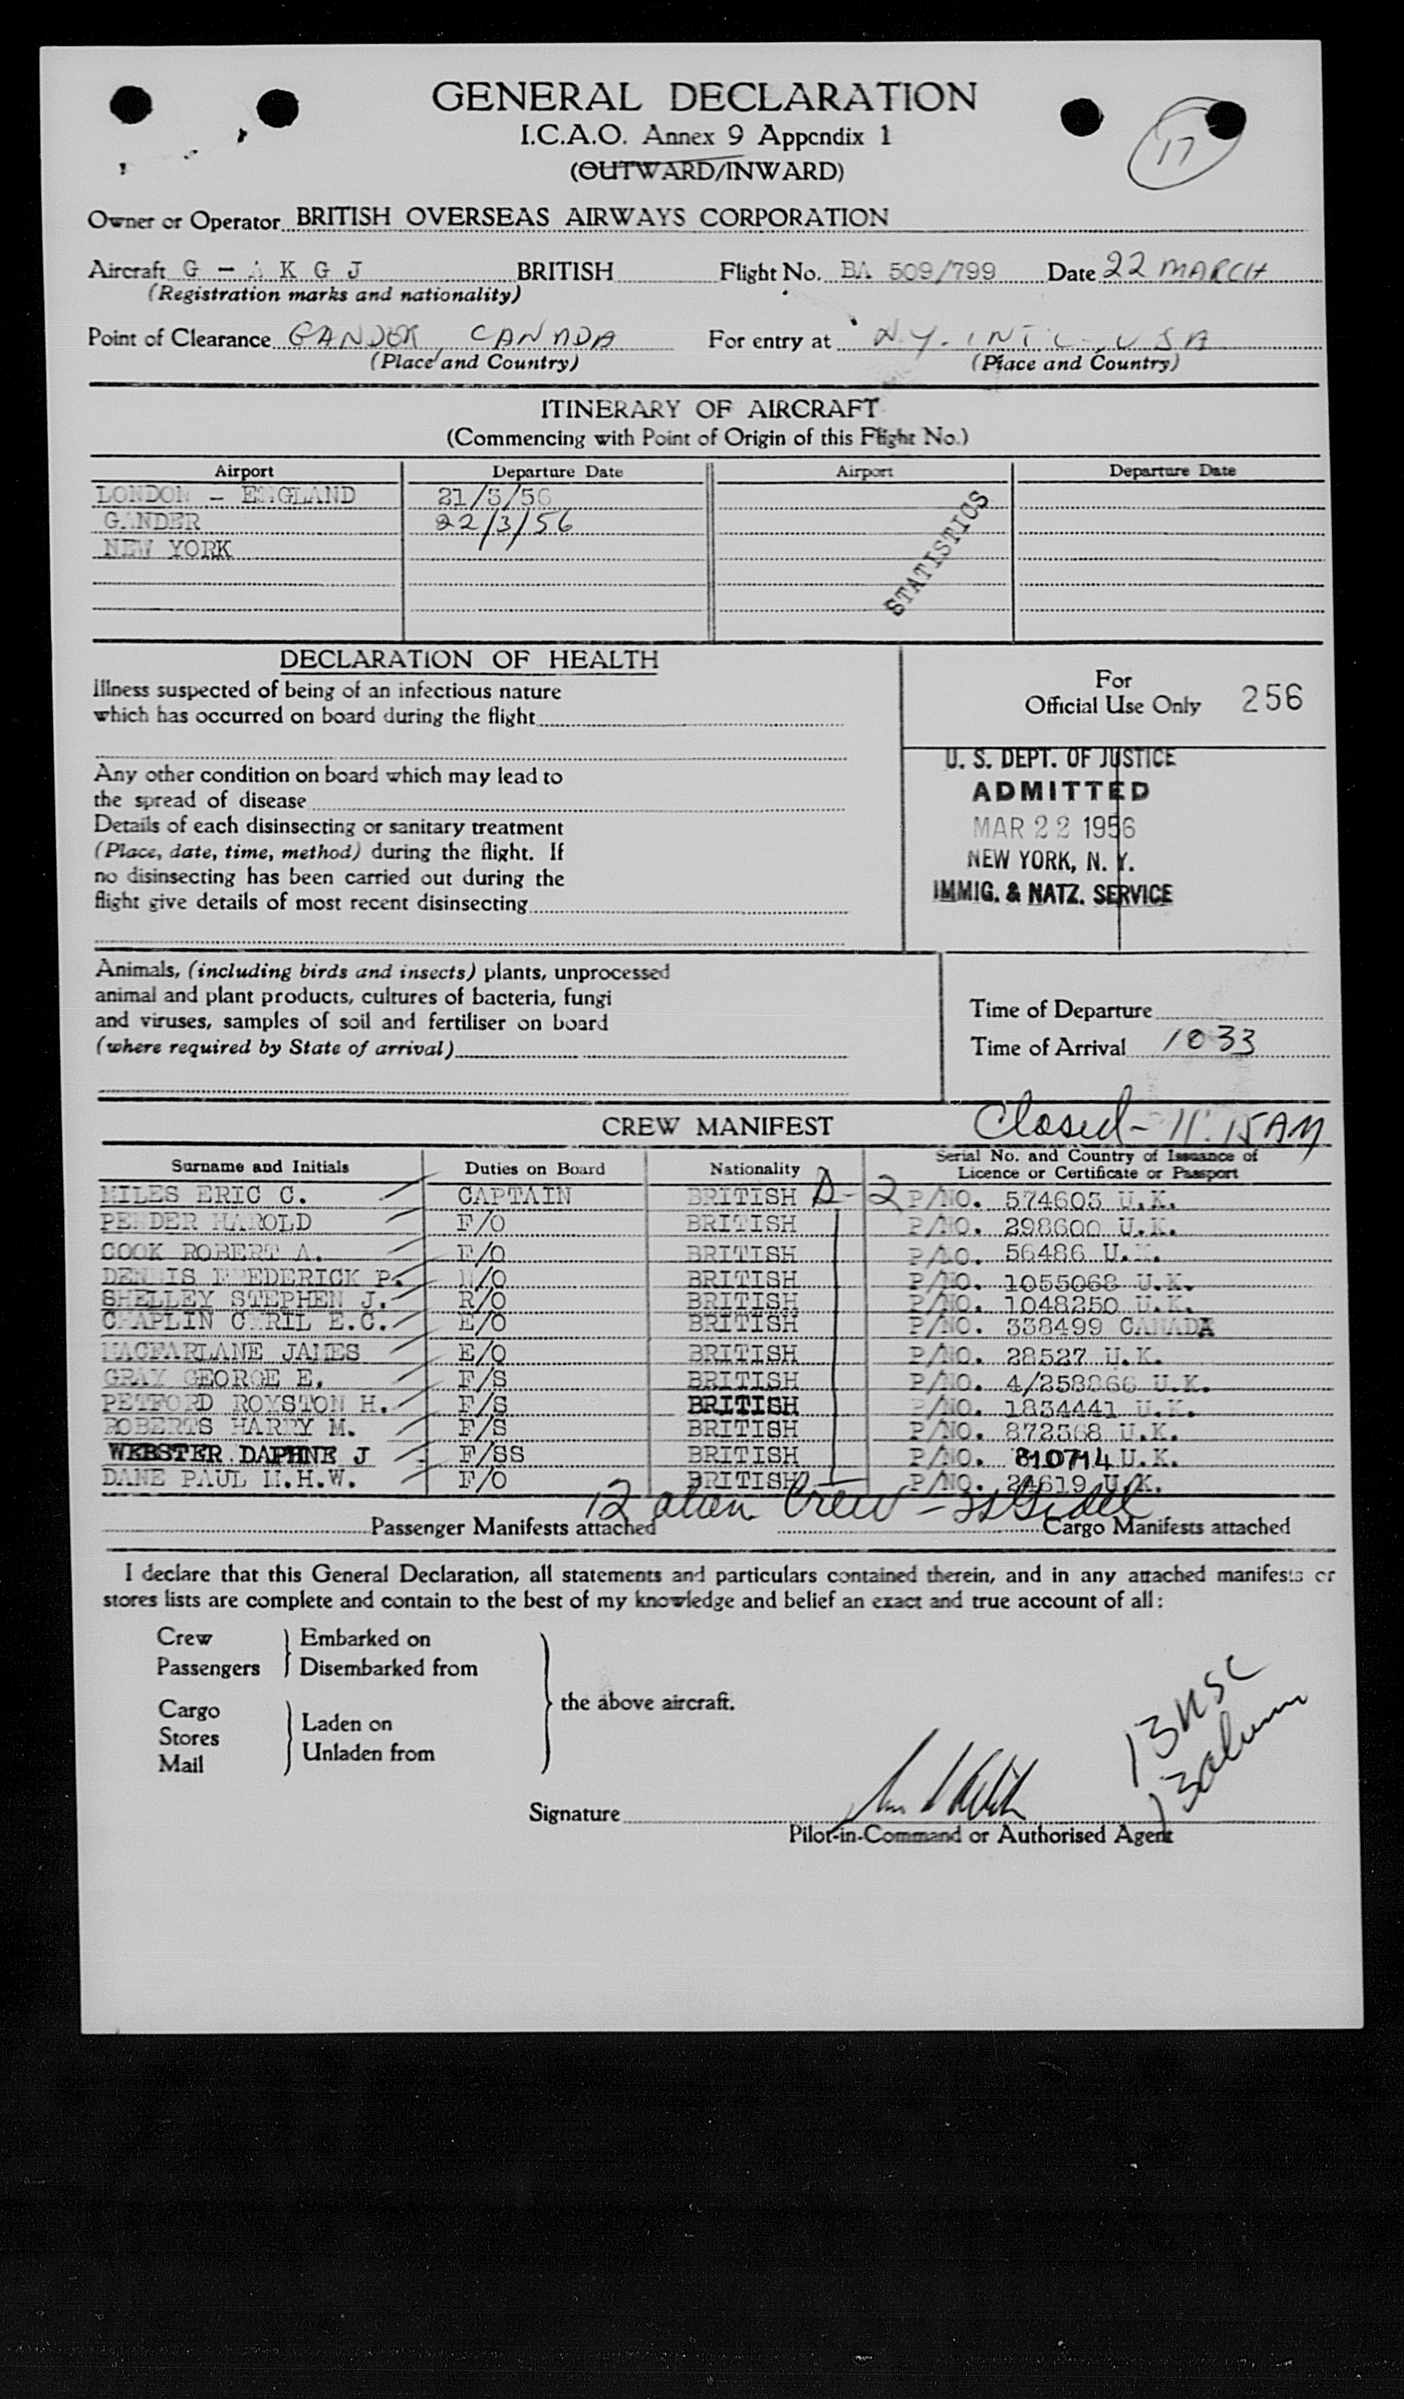 GENERAL DECLARATION
I.C.A.O. Annex 9 Appendix 1
(OUTWARD/INWARD)
17
Owner or Operator BRITISH OVERSEAS AIRWAYS CORPORATION
Aircraft G - A K G J BRITISH Flight No. BA 509/799 Date 22 MARCH
(Registration marks and nationality)
Point of Clearance GANDER, CANADA For entry at N.Y. INT'L, USA
(Place and Country) (Place and Country)
ITINERARY OF AIRCRAFT
(Commencing with Point of Origin of this Flight No.)
Airport Departure Date Airport Departure Date
LONDON - ENGLAND 21/3/56
GANDER 22/3/56
NEW YORK
STATISTICS
DECLARATION OF HEALTH
Illness suspected of being of an infectious nature
which has occurred on board during the flight
For
Official Use Only 256
Any other condition on board which may lead to
the spread of disease
Details of each disinsecting or sanitary treatment
(Place, date, time, method) during the flight. If
no disinsecting has been carried out during the
flight give details of most recent disinsecting
U. S. DEPT. OF JUSTICE
ADMITTED
MAR 22 1956
NEW YORK, N. Y.
IMMIG. & NATZ. SERVICE
Animals, (including birds and insects) plants, unprocessed
animal and plant products, cultures of bacteria, fungi
and viruses, samples of soil and fertiliser on board
(where required by State of arrival)
Time of Departure
Time of Arrival 1033
CREW MANIFEST Closed - 11.15 AM
Surname and Initials Duties on Board Nationality Serial No. and Country of Issuance of
Licence or Certificate or Passport
MILES ERIC C. CAPTAIN BRITISH D-2 P/NO. 574603 U.K.
PENDER HAROLD F/O BRITISH P/NO. 298600 U.K.
COOK ROBERT A. F/O BRITISH P/NO. 56486 U.K.
DENNIS FREDERICK P. N/O BRITISH P/NO. 1055068 U.K.
SHELLEY STEPHEN J. R/O BRITISH P/NO. 1048250 U.K.
CHAPLIN CYRIL E.C. E/O BRITISH P/NO. 338499 CANADA
MACFARLANE JAMES E/O BRITISH P/NO. 28527 U.K.
GRAY GEORGE E. F/S BRITISH P/NO. 4/258866 U.K.
PETFORD ROYSTON H. F/S BRITISH P/NO. 1834441 U.K.
ROBERTS HARRY M. F/S BRITISH P/NO. 872368 U.K.
WEBSTER DAPHNE J F/SS BRITISH P/NO. 810714 U.K.
DANE PAUL H.H.W. F/O BRITISH P/NO. 24619 U.K.
12 alien Crew -
Passenger Manifests attached Cargo Manifests attached
I declare that this General Declaration, all statements and particulars contained therein, and in any attached manifests or
stores lists are complete and contain to the best of my knowledge and belief an exact and true account of all:
Crew Embarked on
Passengers Disembarked from
the above aircraft.
Cargo
Stores Laden on
Mail Unladen from
13 USC
13 alien
Signature
Pilot-in-Command or Authorised Agent